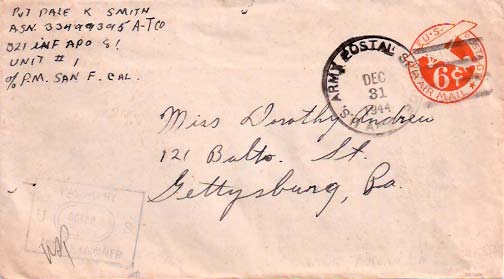 Pvt DALE K SMITH
ASN. 33499395 A-TCO
321 INF APO 81
UNIT # 1
℅ P.M. SAN F. CAL.
U.S. ARMY POSTAL
DEC
31
1944
U.S. POSTAGE
6¢
VIA AIR MAIL
Miss Dorothy Andrew
121 Balto. St.
Gettysburg, Pa.
U S
ARMY
EXAMINER